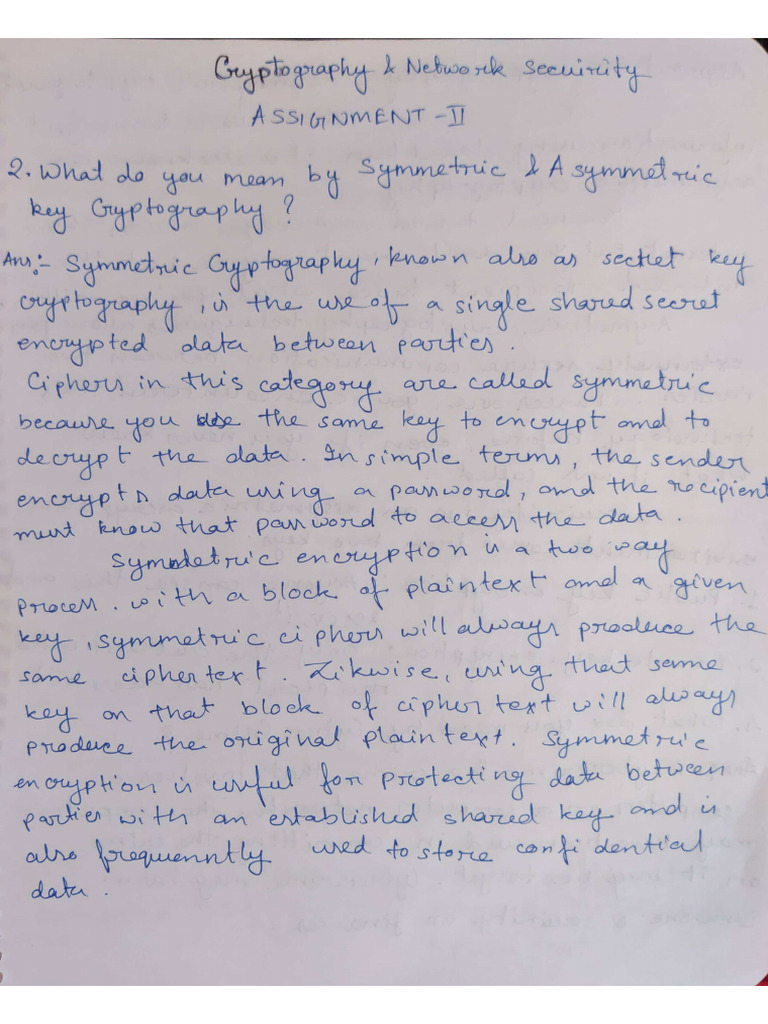 Cryptography & Network Secuircity
ASSIGNMENT - II
2. What do you mean by Symmetric & Asymmetric
key Cryptography ?
Ans:- Symmetric Cryptography, known also as secret key
cryptography, is the use of a single shared secret
encrypted data between parties.
Ciphers in this category are called symmetric
because you use the same key to encrypt and to
decrypt the data. In simple terms, the sender
encrypts data using a password, and the recipient
must know that password to access the data.
Symmetric encryption is a two way
process. with a block of plaintext and a given
key, symmetric ciphers will always produce the
same ciphertext. Likwise, using that same
key on that block of cipher text will always
produce the original plaintext. Symmetric
encryption is useful for protecting data between
parties with an established shared key and is
also frequenntly used to store confidential
data.